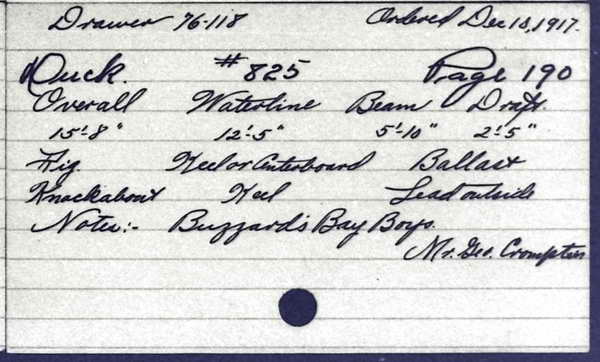 Drawer 76-118 Ordered Dec 18, 1917.
Duck. #825 Page 190
Overall Waterline Beam Draft.
15'-8" 12'-5" 5'-10" 2'-5"
Rig. Keel or Centerboard Ballast
Knockabout Keel Lead outside
Notes:- Buzzards Bay Boys.
Mr. Geo. Crompton